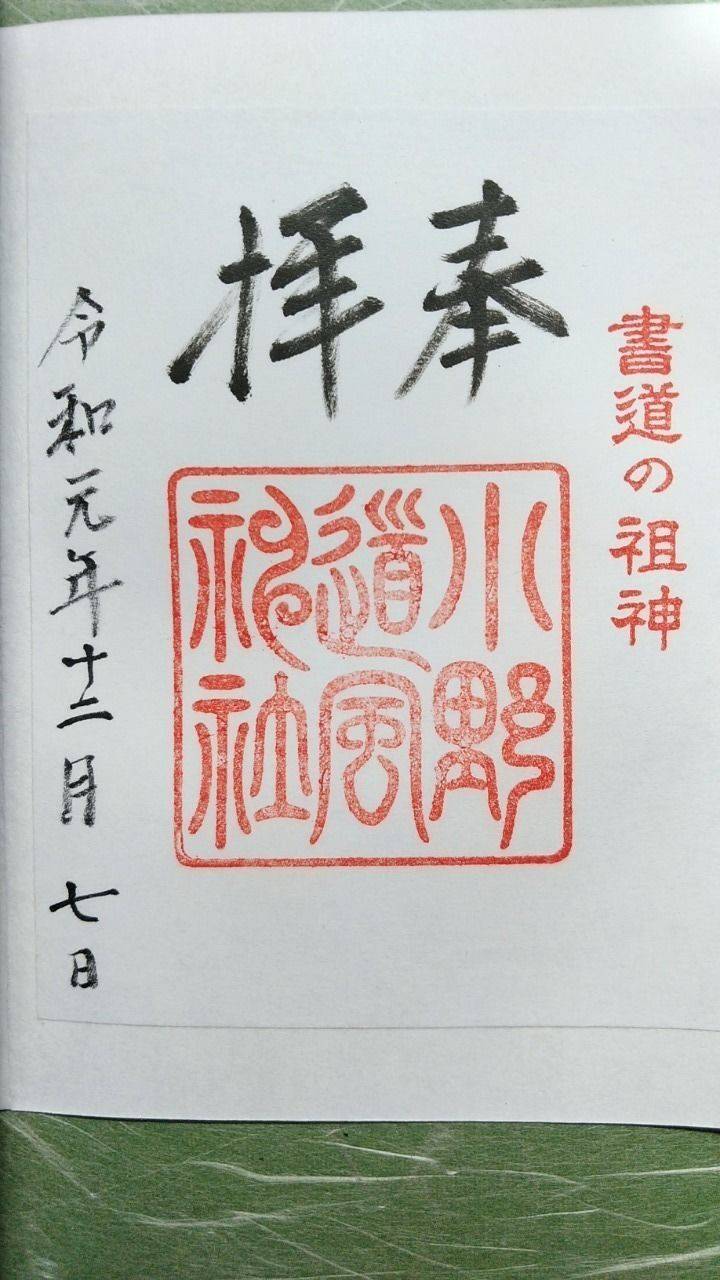 書道の祖神
奉拝
小野
道風
神社
令和元年十二月七日